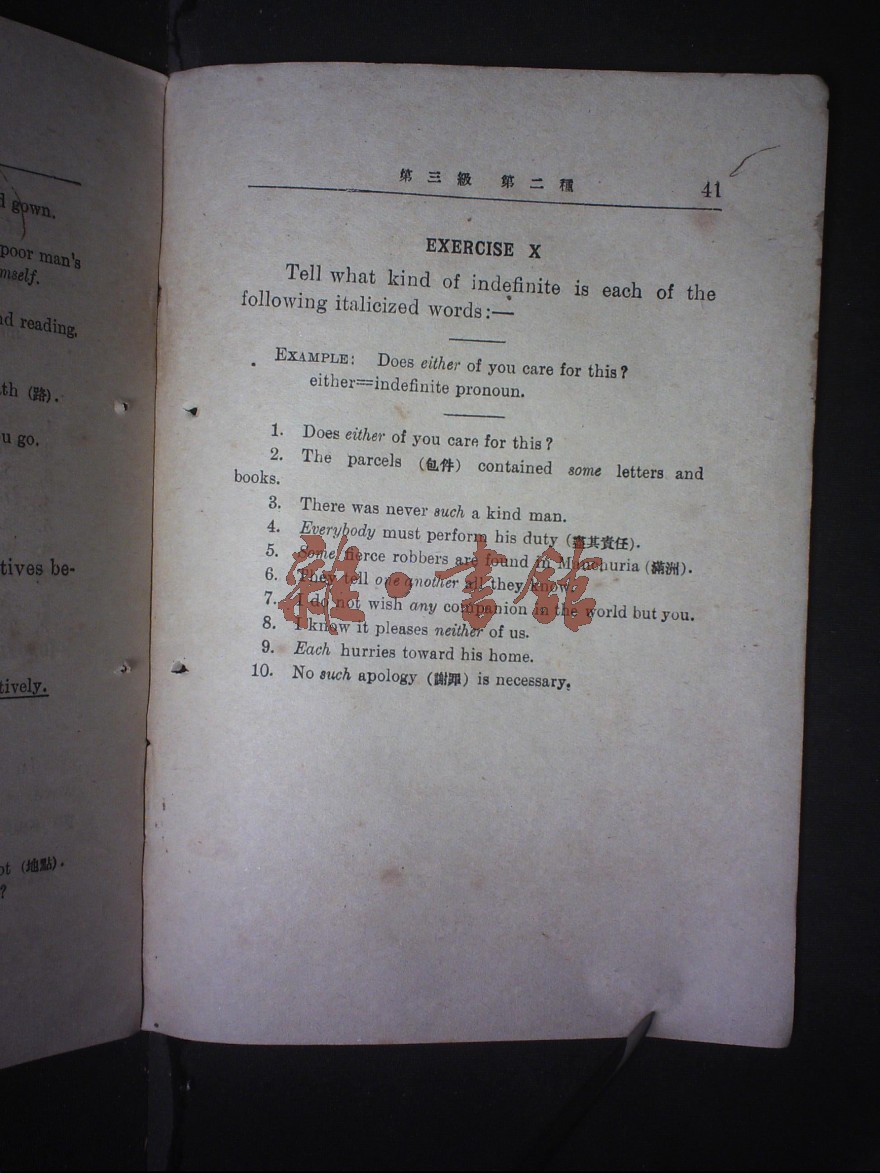 d gown.
poor man's
mself.
nd reading.
th (路).
u go.
tives be-
tively.
ot (地點).
?
第三級 第二種 41
EXERCISE X
Tell what kind of indefinite is each of the
following italicized words:—
EXAMPLE: Does either of you care for this?
either==indefinite pronoun.
1. Does either of you care for this?
2. The parcels (包件) contained some letters and
books.
3. There was never such a kind man.
4. Everybody must perform his duty (盡其責任).
5. Some fierce robbers are found in Manchuria (滿洲).
6. They tell one another all they know.
7. I do not wish any companion in the world but you.
8. I know it pleases neither of us.
9. Each hurries toward his home.
10. No such apology (謝罪) is necessary.
雜·書館